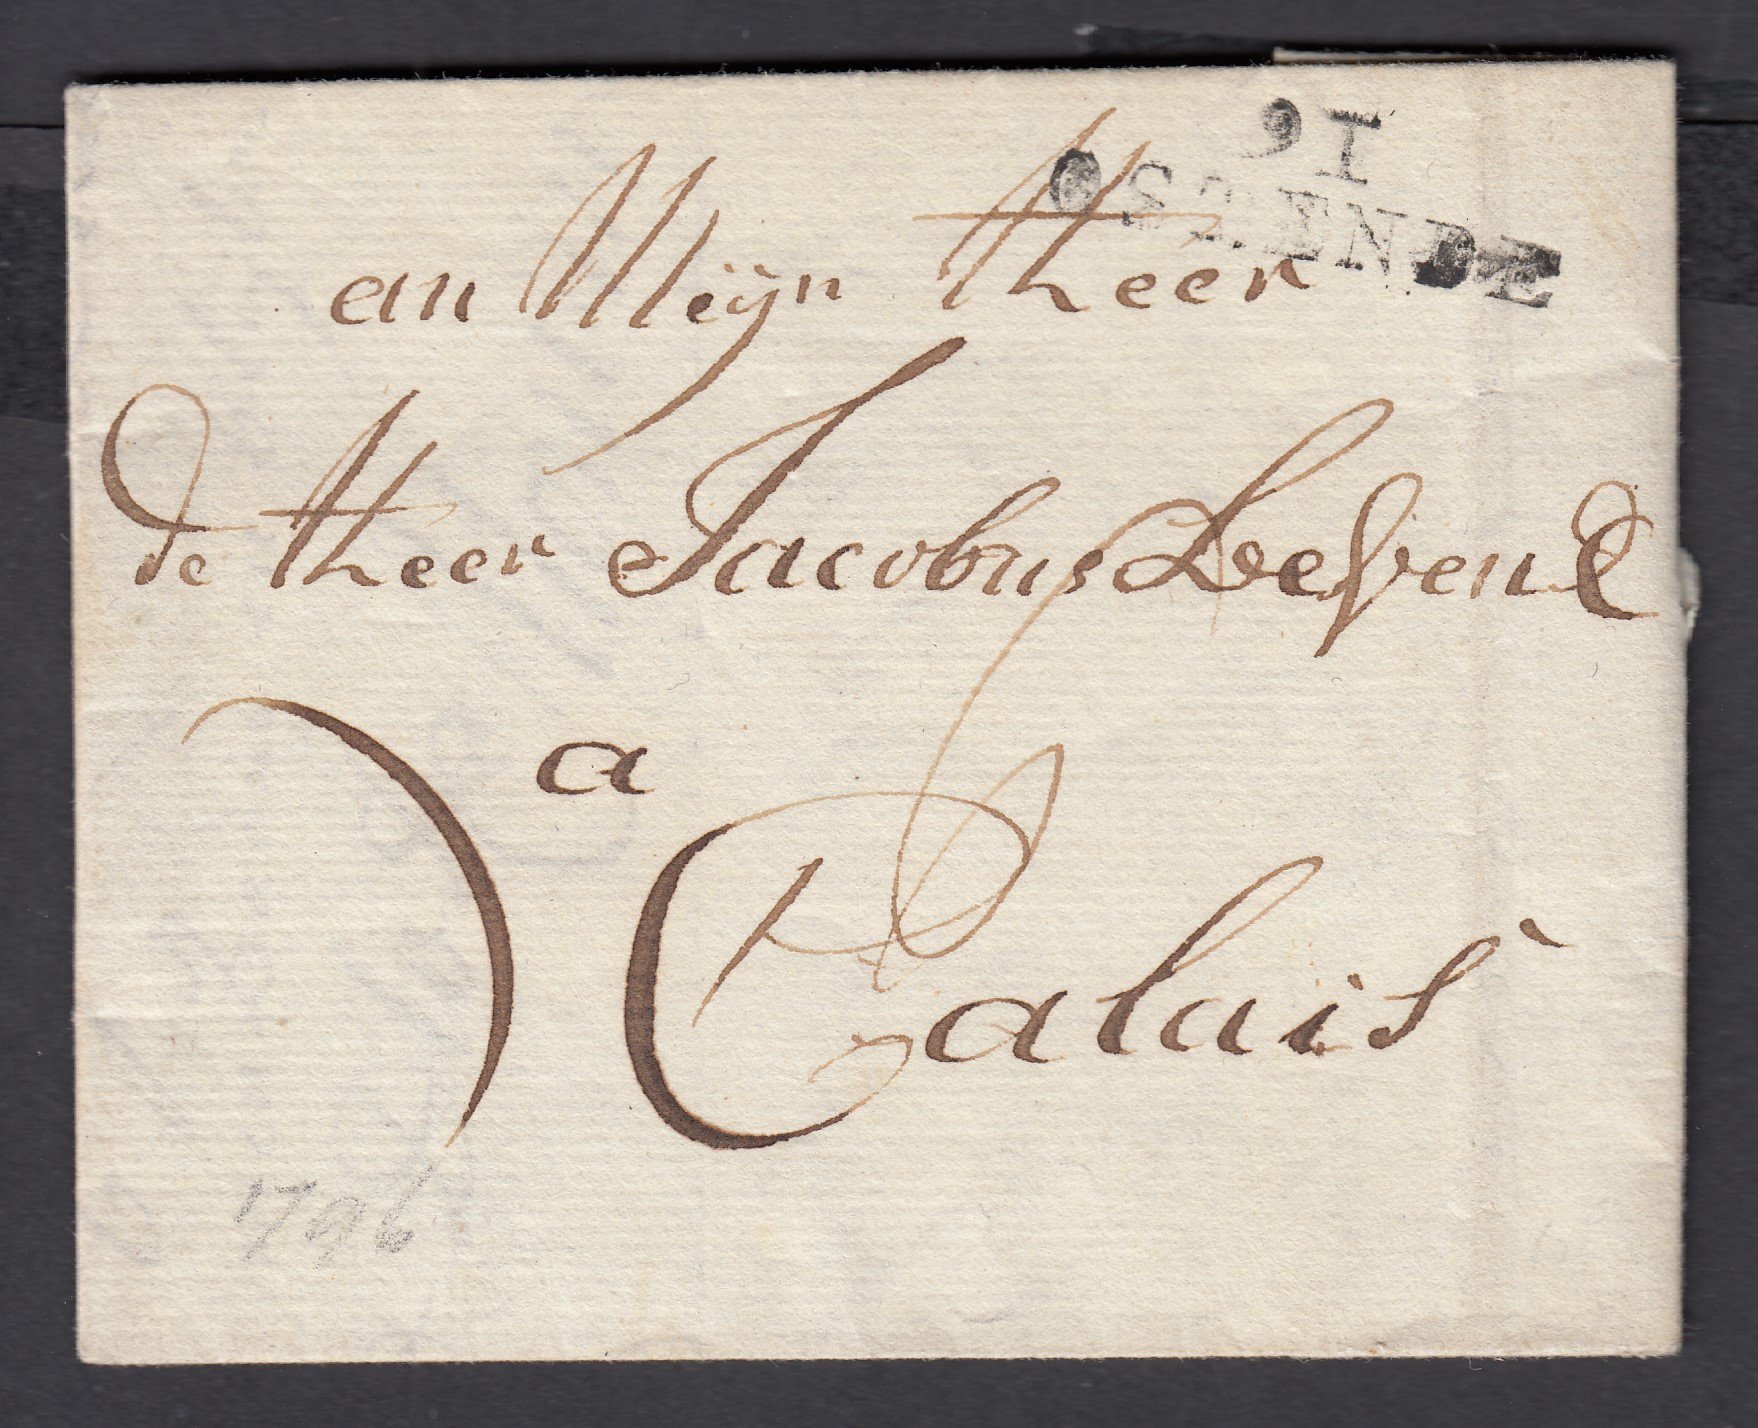 91
OSTENDE
an Mijn Heer
de Heer Jacobus Devend
a
Calais
1796